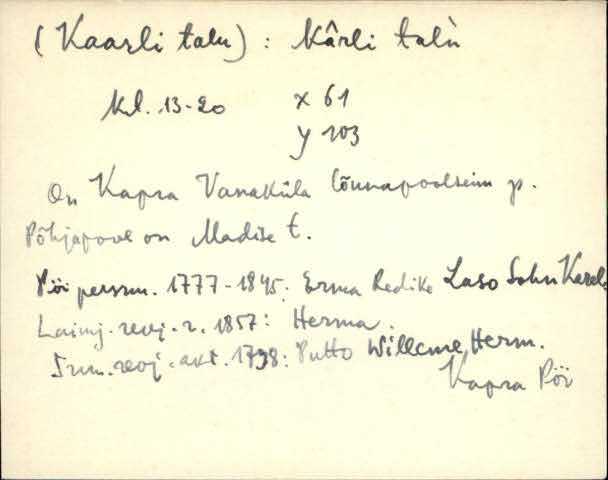 (Kaarli talu) : Kârli talù
Kl. 13-20 x 61
y 103
On Kapra Vanaküla lõunapoolseim p.
Põhjapool on Madise t.
Pöi personn. 1777-1845. Erma Redike Laso Sohn Karel
Laimj. revj. r. 1857: Herma.
Srm. revj. akt. 1798: Putto Willeme, Herm.
Kapra Pöi